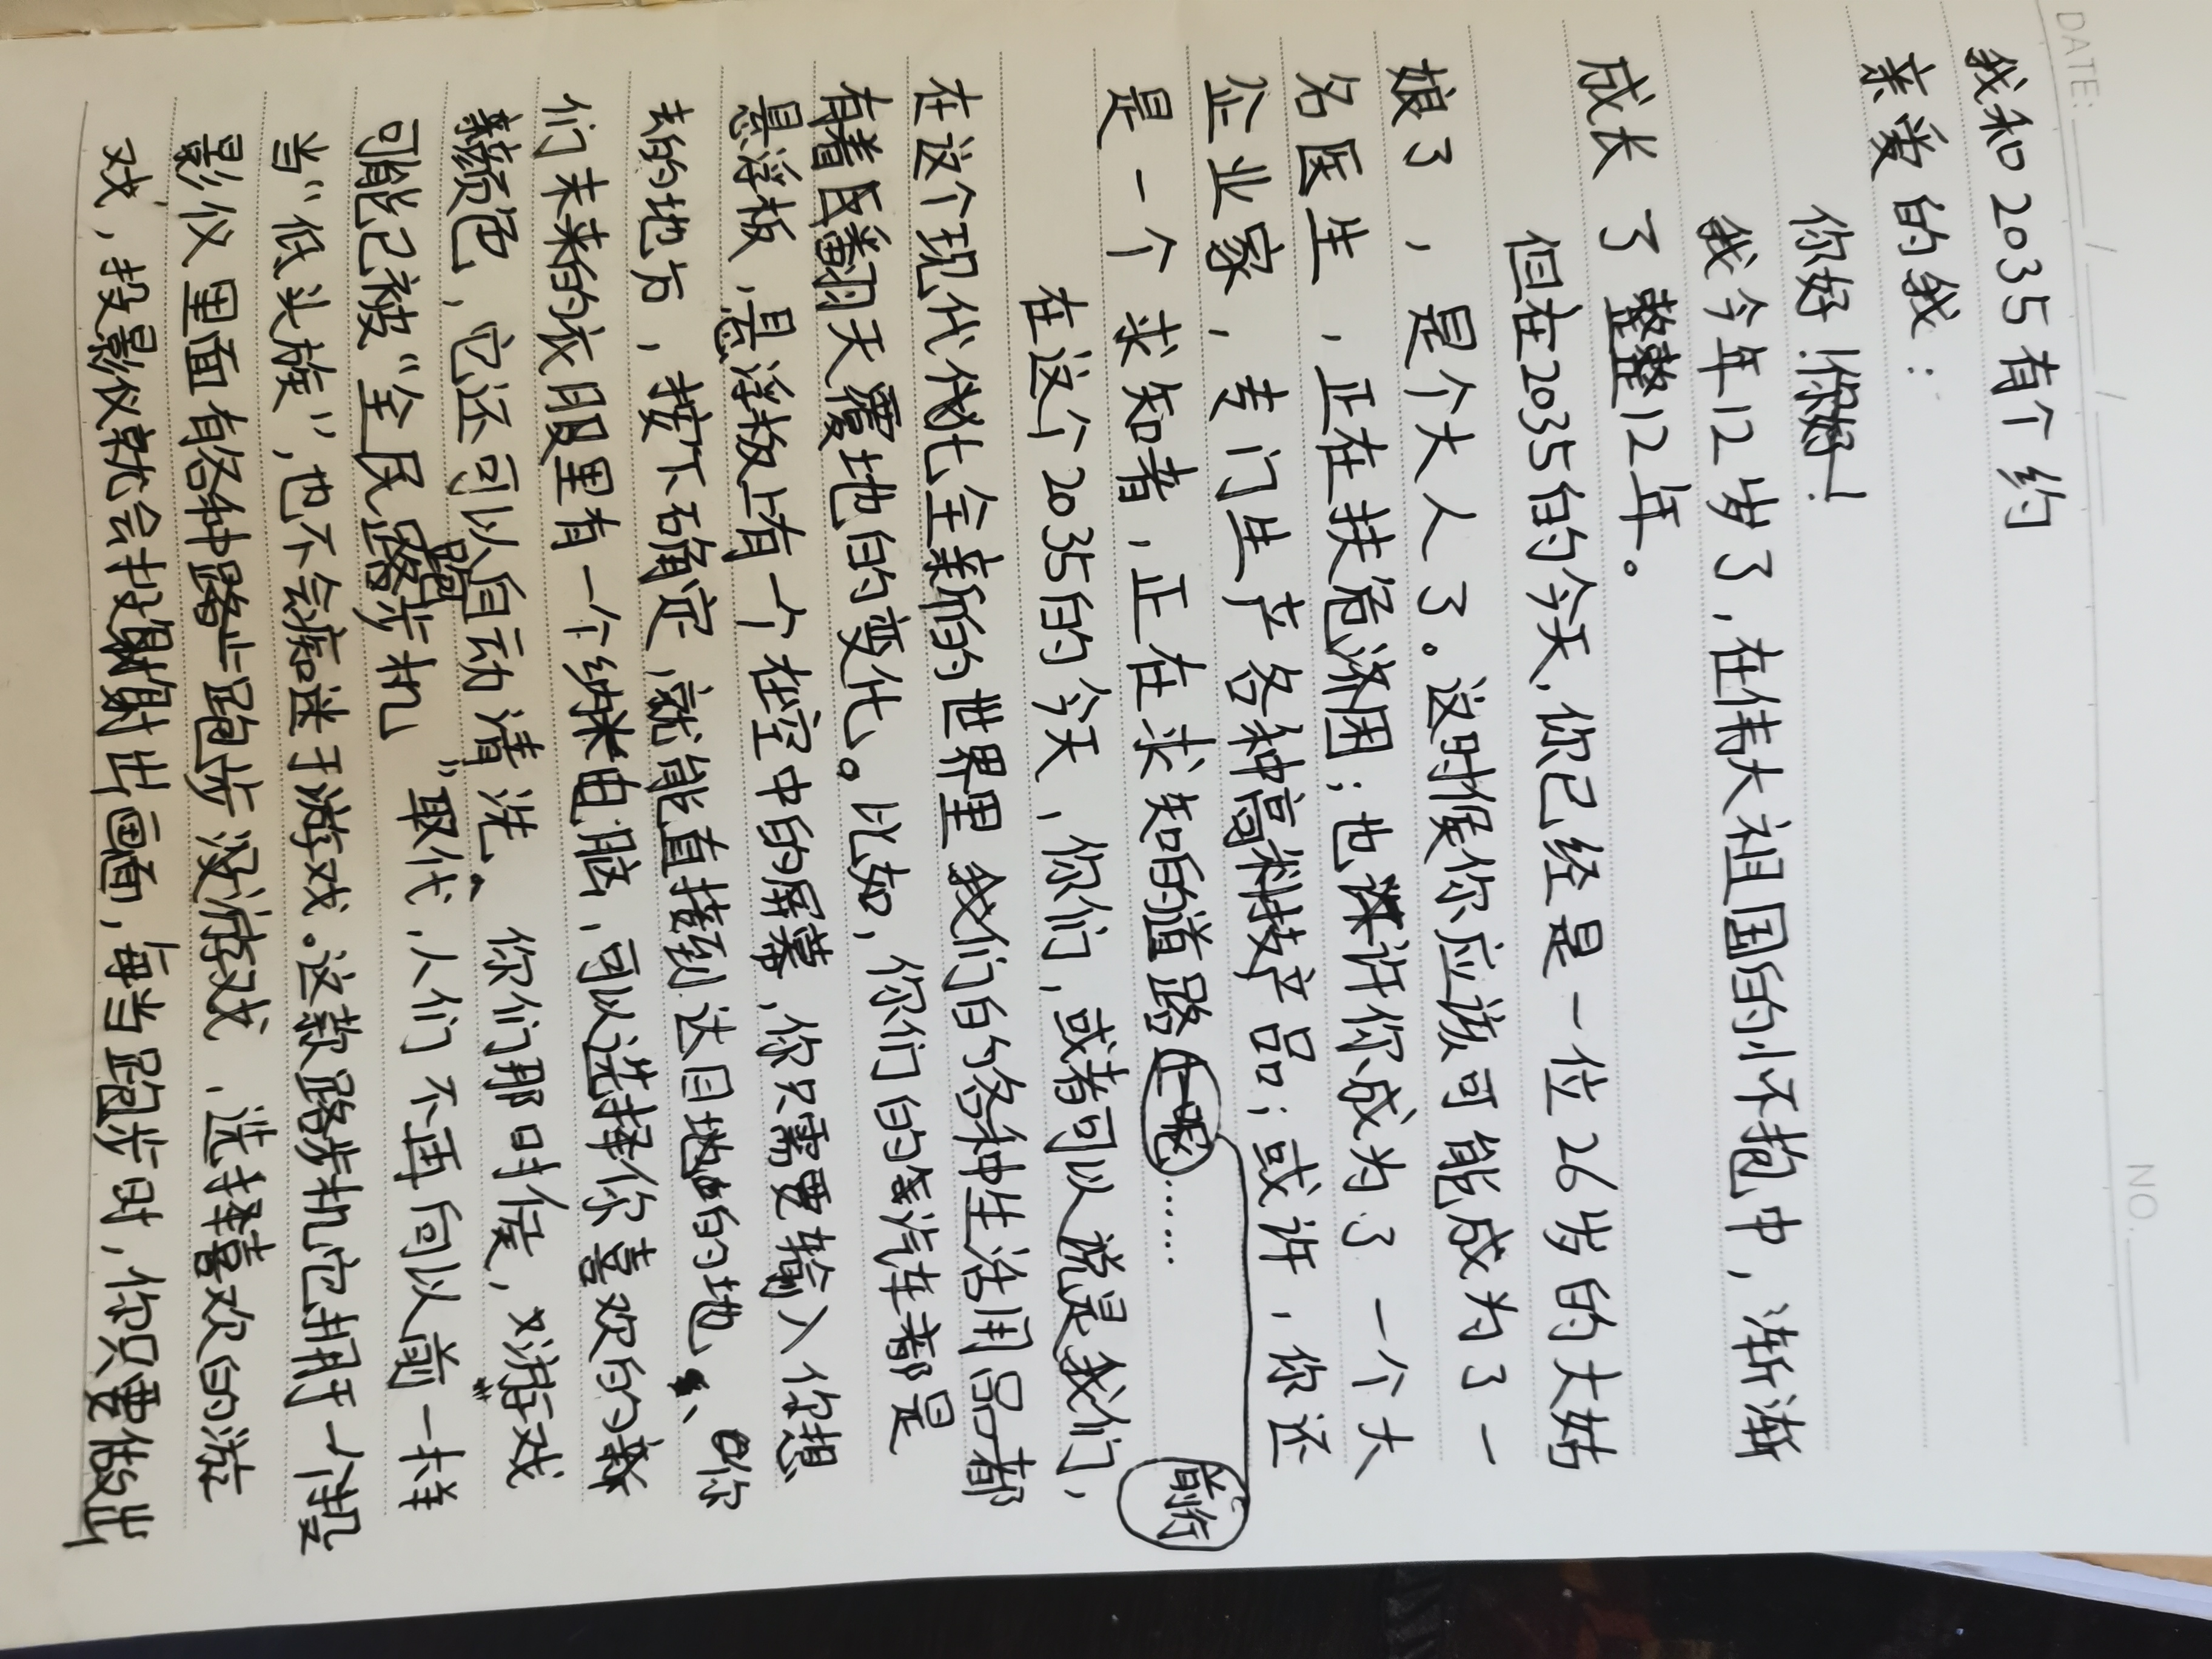 DATE: / /
NO.
我和2035有个约
亲爱的我：
你好！
我今年12岁了，在伟大祖国的小怀抱中，渐渐
成长了整整12年。
但在2035的今天，你已经是一位26岁的大姑
娘了，是个大人了。这时候你应该可能成为了一
名医生，正在扶危济困；也许你成为了一个大
企业家，专门生产各种高科技产品；或许，你还
是一个求知者，正在求知的道路上呢……
前行
在这个2035的今天，你们，或者可以说是我们，
在这个现代化全新的世界里我们的各种生活用品都
有着翻天覆地的变化。比如，你们的汽车都是
悬浮板，悬浮板上有一个在空中的屏幕，你只需要输入你想
去的地方，按下确定，就能直接到达目地的地、你
们未来的衣服里有一个纳米电脑，可以选择你喜欢的
颜色，它还可以自动清洗。你们那时侯，对游戏
可能已被“全民跑步机”取代，人们不再向以前一样
当“低头族”，也不会痴迷于游戏。这款路步机它拥于一个投
影仪里面有各种跑步没游戏，选择喜欢的游
戏，投影仪就会投射出画面，每当跑步时，你只要做出